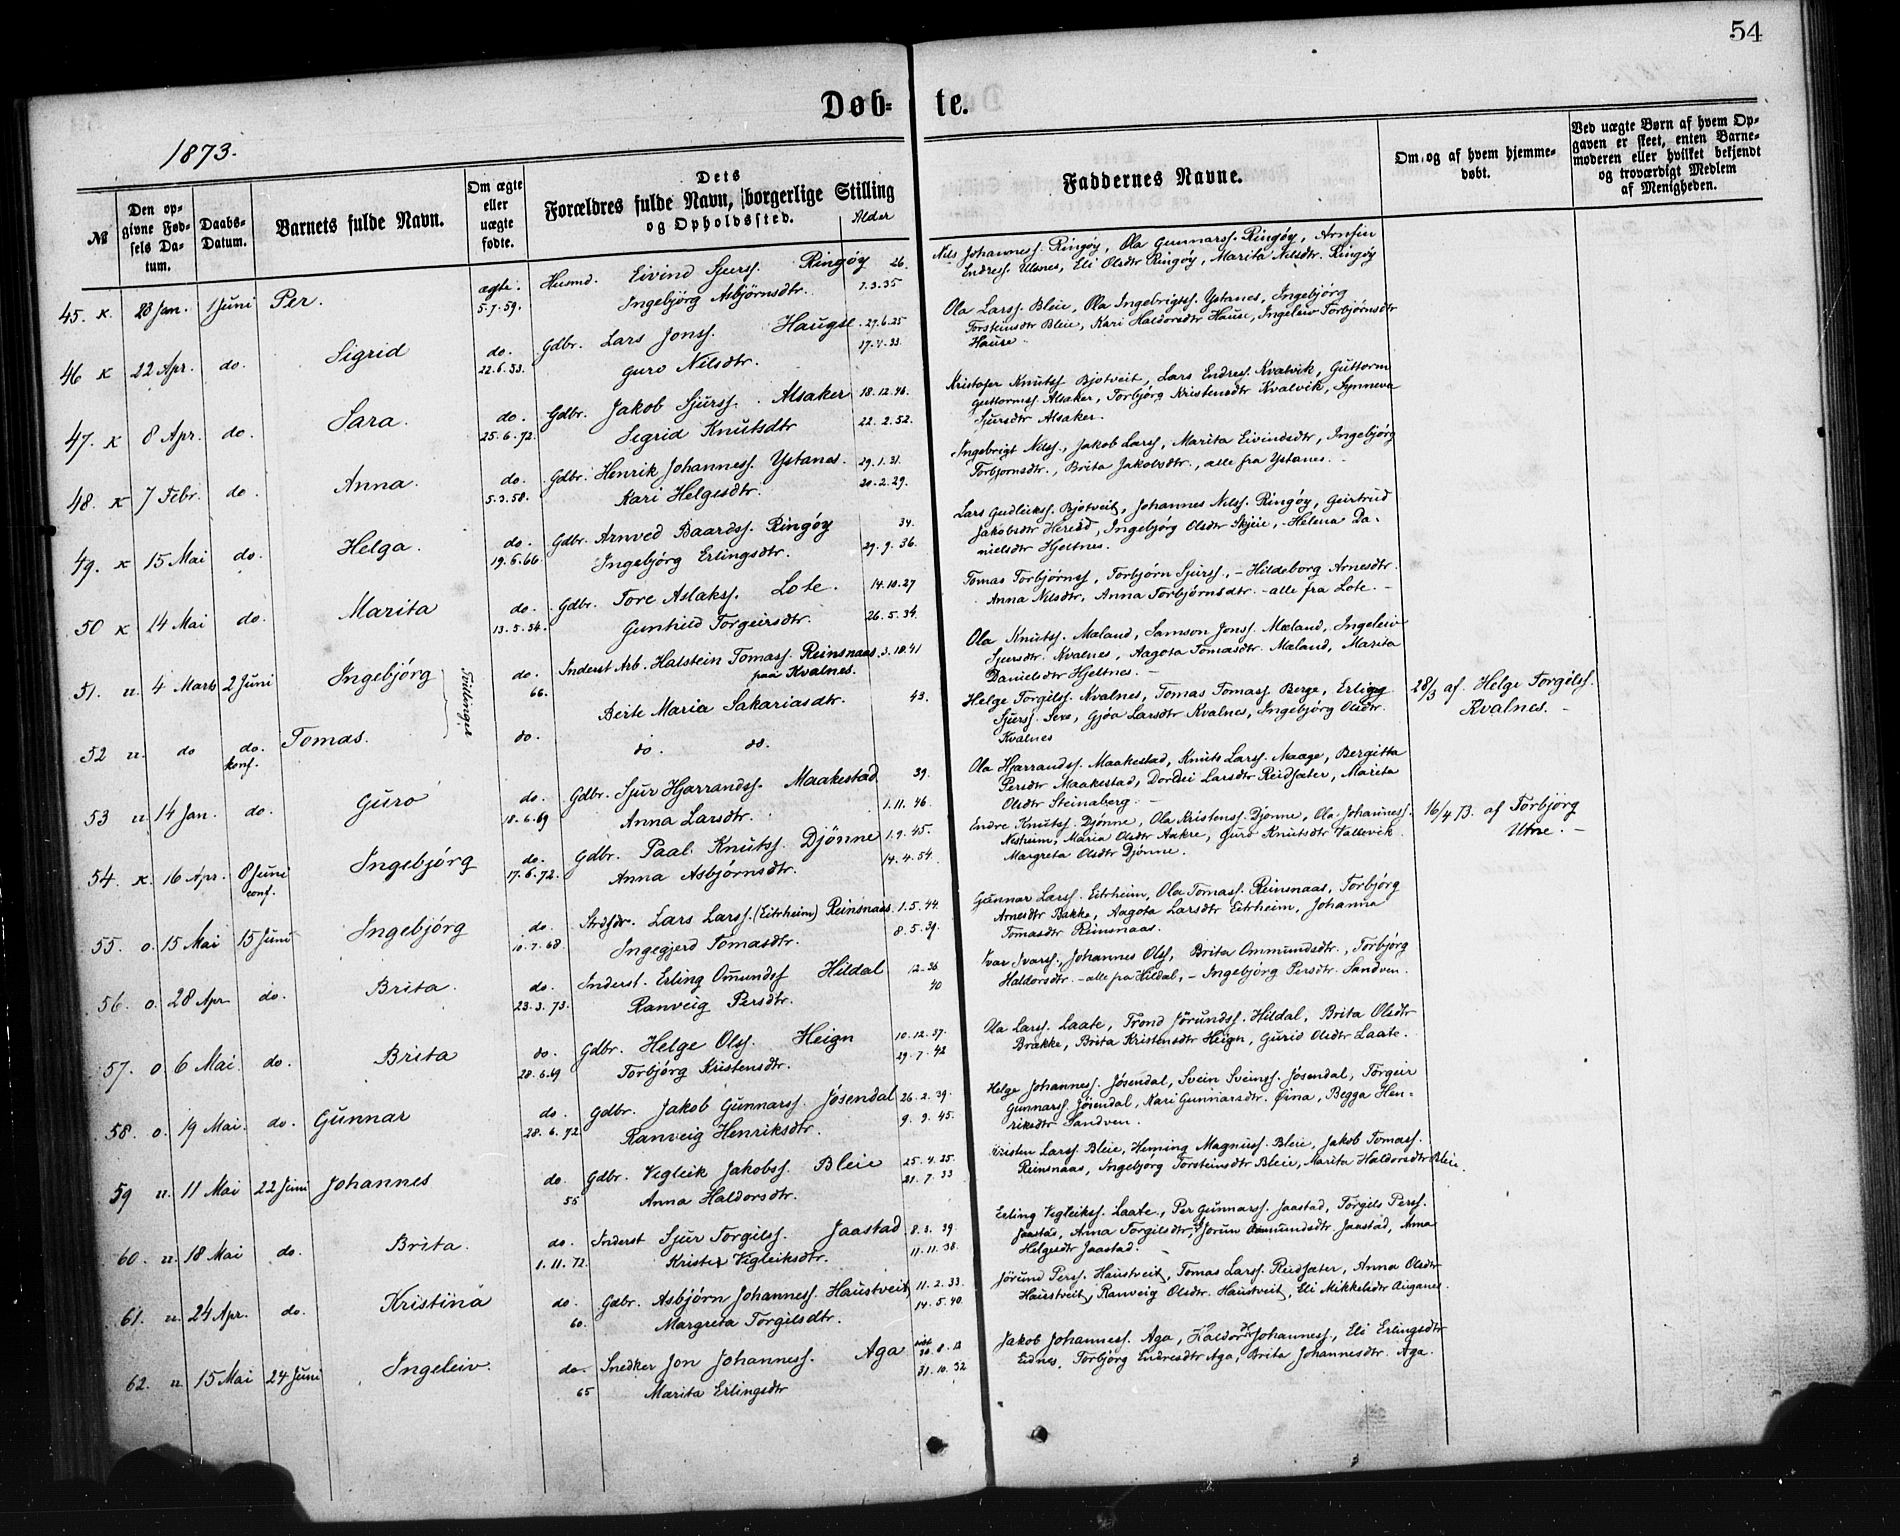 54
Døb- te.
1873.
№
Den op-
givne Fød-
sels Da-
tum.
Daabs-
Datum.
Barnets fulde Navn.
Om ægte
eller
uægte
fødte.
Dets
Forældres fulde Navn, borgerlige Stilling
og Opholdssted.
Alder
Faddernes Navne.
Om og af hvem hjemme-
døbt.
Ved uægte Børn af hvem Op-
gaven er skeet, enten Barne-
moderen eller hvilket bekjendt
og troværdigt Medlem
af Menigheden.
45. K. 23 Jan. 1 Juni Per. ægte. Husmd. Eivind Sjurss. Ringøy 26.
5.7.59. Ingebjörg Asbjörnsdtr. 7.3.35
Nils Johanness. Ringøy, Ola Gunnarss. Ringøy, Arnfin
Endress. Ulsnes, Eli Olsdtr Ringøy, Marita Nilsdtr. Ringøy
46 K 22 Apr. do. Sigrid do. Gdbr. Lars Jonss. Haugse 27.6.25
22.6.53. Guro Nilsdtr. 17.4.33.
Ola Larss. Bleie, Ola Ingebrigtss. Ystanes, Ingebjörg
Torsteinsdtr Bleie, Kari Haldorsdtr Hause, Ingeleiv Torbjørnsdtr
Hause.
47. K 8 Apr. do. Sara. do. Gdbr. Jakob Sjurss. Alsaker 18.12.46.
25.6.72. Sigrid Knutsdtr 22.2.52.
Kristofer Knutss Bjotveit, Lars Endress. Kvalvik, Guttorm
Guttormss. Alsaker, Torbjörg Kristensdtr Kvalvik, Synneva
Sjursdtr Alsaker.
48. K 7 Febr. do. Anna. do. Gdbr. Henrik Johanness. Ystanes. 29.1.31.
5.3.58. Kari Helgesdtr. 20.2.29.
Ingebrigt Nilss., Jakob Larss, Marita Eivindsdtr, Ingebjörg
Torbjornsdtr., Brita Jakobsdtr., alle fra Ystanes.
49. K 15 Mai do. Helga. do. Gdbr. Arnved Baardss. Ringöy 34.
19.6.66. Ingebjørg Erlingsdtr. 29.9.36.
Lars Gudleikss. Bjotveit, Johannes Nilss. Ringøy, Geirtrud
Jakobsdtr Hereid, Ingebjørg Olsdtr Skjeie, - Helena Da-
nielsdtr Hjeltnes.
50 K 14 Mai do. Marita do. Gdbr. Tore Aslakss. Lote. 14.10.27
13.5.54. Gunhild Torgeirsdtr. 26.5.34.
Tomas Torbjörnss, Torbjørn Sjurss, - Hildeborg Arnesdtr.
Anna Nilsdtr, Anna Torbjörnsdtr. - alle fra Lote. -
51. u. 4 Marts 2 Juni Ingebjørg Tvilinger do. Inderst Arb. Halstein Tomass. Reinsnaas 3.10.41
paa Kvalnes.
66. Berte Maria Sakariasdtr. 43.
Ola Knutss. Mæland, Samson Jonss. Mæland, Ingeleiv
Sjursdtr. Kvalnes, Aagota Tomasdtr. Mæland, Marita
Danielsdtr Hjeltnes. -
52 u. do do. konf. Tomas. do. do. do.
Helge Torgilss. Kvalnes, Tomas Tomass. Berge, Erling
Sjurss. Sexe, Gjøa Larsdtr Kvalnes, Ingebjörg Olsdtr.
Kvalnes
28/3 af. Helge Torgilss.
Kvalnes. -
53 u. 14 Jan. do. Guro do. Gdbr. Sjur Hjarrandss. Maakestad 39.
18.6.69 Anna Larsdtr. 1.11.46.
Ola Hjarrandss. Maakestad, Knut Larss. Maage, Bergitta
Persdtr Maakestad, Dordei Larsdtr Reidsæter, Marita
Olsdtr Steinaberg. -
54. K. 16 Apr. 8 Juni conf. Ingebjörg do. Gdbr. Paal Knutss. Djönne 1.9.45.
17.6.72. Anna Asbjörnsdtr. 14.4.54.
Endre Knutss. Djønne, Ola Kristenss. Djønne, Ola Johanness.
Nestuim, Maria Olsdtr Aakre, Guro Knutsdtr Vallevik.
Margreta Olsdtr Djönne.
16/4 73. af Torbjörg
Utne. -
55. o. 15 Mai 15 Juni Ingebjörg do. Lars Larss. (Eitrheim) Reinsnaas. 1.5.44.
10.7.68. Ingegjerd Tomasdtr. 8.5.39.
Gunnar Larss. Eitrheim, Ola Tomass. Reinsnaas, Torbjörg
Arnesdtr Bakke, Aagota Larsdtr Eitrheim, Johanna
Tomasdtr Reinsnaas.
56. o. 28 Apr do. Brita. do. Inderst. Erling Omundss Hildal 12.36
23.3.73. Ranveig Persdtr. 40
Ivar Ivarss., Johannes Olss, Brita Ommundsdtr., Torbjörg
Haldorsdtr. - alle fra Hildal, - Ingebjörg Persdtr. Sandven.
57. o 6 Mai. do. Brita do. Gdbr. Helge Olss. Heign 10.12.37.
28.6.69 Torbjörg Kristensdtr. 29.7.42
Ola Larss. Laate, Trond Jörundss. Hildal, Brita Olsdtr
Brække, Brita Kristensdtr Heign, Gurid Olsdtr Laate.
58. o. 19 Mai. do. Gunnar do. Gdbr. Jakob Gunnarss. Jösendal 26.2.39.
28.6.72 Ranveig Henriksdtr. 9.9.45.
Helge Johanness. Jösendal, Svein Sveinss. Jösendal, Torgeir
Gunnarss. Jösendal, Kari Gunnarsdtr. Eina, Begga Hen-
riksdtr Sandven.
59 u. 11 Mai 22 Juni Johannes do. Gdbr. Vigleik Jakobss. Bleie 25.4.25.
55 Anna Haldorsdtr. 21.7.33
Kristen Larss. Bleie, Heming Magnuss. Bleie, Jakob Tomass.
Reinsnaas, Ingebjörg Torsteinsdtr Bleie, Marita Haldorsdtr Bleie.
60. u. 18 Mai do. Brita. do. Inderst Sjur Torgilss. Jaastad 8.3.39.
1.11.72. Krister Vigleiksdtr. 11.11.38.
Erling Vigleikss. Laate, Per Gunnarss. Jaastad, Torgils Perss.
Jaastad, Anna Torgilsdtr, Jorun Omundsdtr. Jaastad, Anna
Helgesdtr Jaastad.
61. u. 24 Apr. do. Kristina do. Gdbr. Asbjørn Johanness. Haustveit, 11.2.33.
60. Margreta Torgilsdtr. 14.5.40.
Jörund Perss. Haustveit, Tomas Larss. Reidsæter, Anna Olsdtr
Haustveit, Ranveig Olsdtr. Haustveit, Eli Mikkelsdtr Auganes.
62. u. 15 Mai 24 Juni Ingeleiv. do. Snedker Jon Johanness. Aga
65 Marita Erlingsdtr 31.10.32
Jakob Johanness. Aga, Haldor Johanness, Eli Erlingsdtr
Eidnes, Torbjörg Endresdtr Aga, Brita Johannesdtr. Aga.